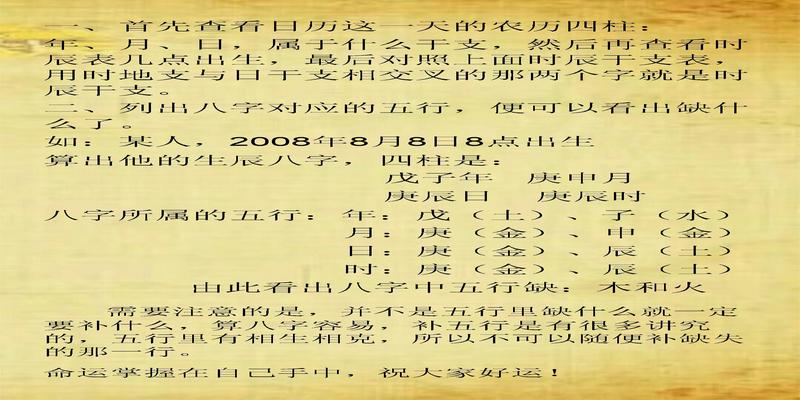 一、首先查看日历这一天的农历四柱：
年、月、日，属于什么干支，然后再查看时
辰表几点出生，最后对照上面时辰干支表，
用时地支与日干支相交叉的那两个字就是时
辰干支。
二、列出八字对应的五行，便可以看出缺什
么了。
如：某人，2008年8月8日8点出生
算出他的生辰八字，四柱是：
戊子年 庚申月
庚辰日 庚辰时
八字所属的五行：年：戊（土）、子（水）
月：庚（金）、申（金）
日：庚（金）、辰（土）
时：庚（金）、辰（土）
由此看出八字中五行缺：木和火
需要注意的是，并不是五行里缺什么就一定
要补什么，算八字容易，补五行是有很多讲究
的，五行里有相生相克，所以不可以随便补缺失
的那一行。
命运掌握在自己手中，祝大家好运！